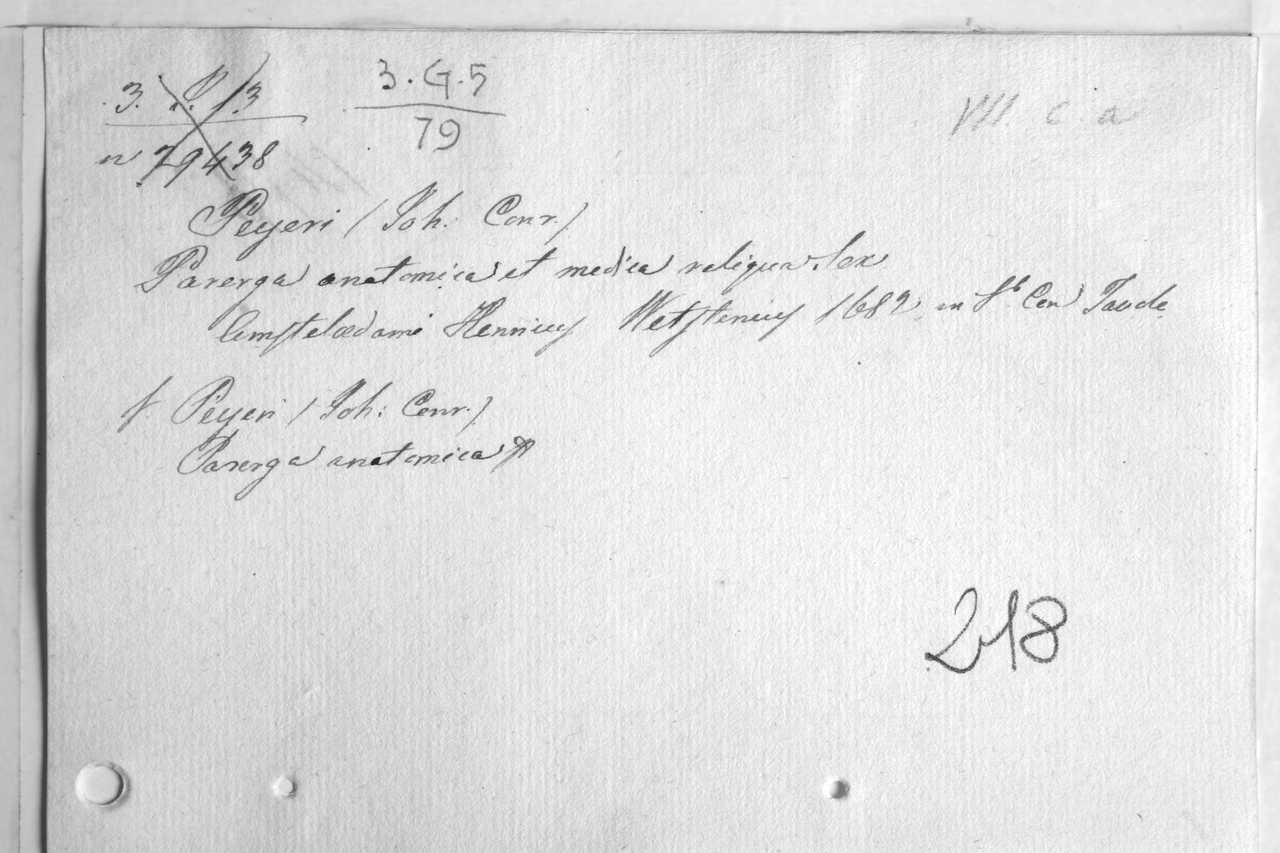 3. 13
n 79438
3. G. 5
79
VII. c. a
Peyeri (Joh: Conr.)
Parerga anatomica et medica reliqua sex
Amstelædami Henricus Wetstenius 1682 in 8º Con Tavole
f Peyeri (Joh: Conr.)
Parerga anatomica
218